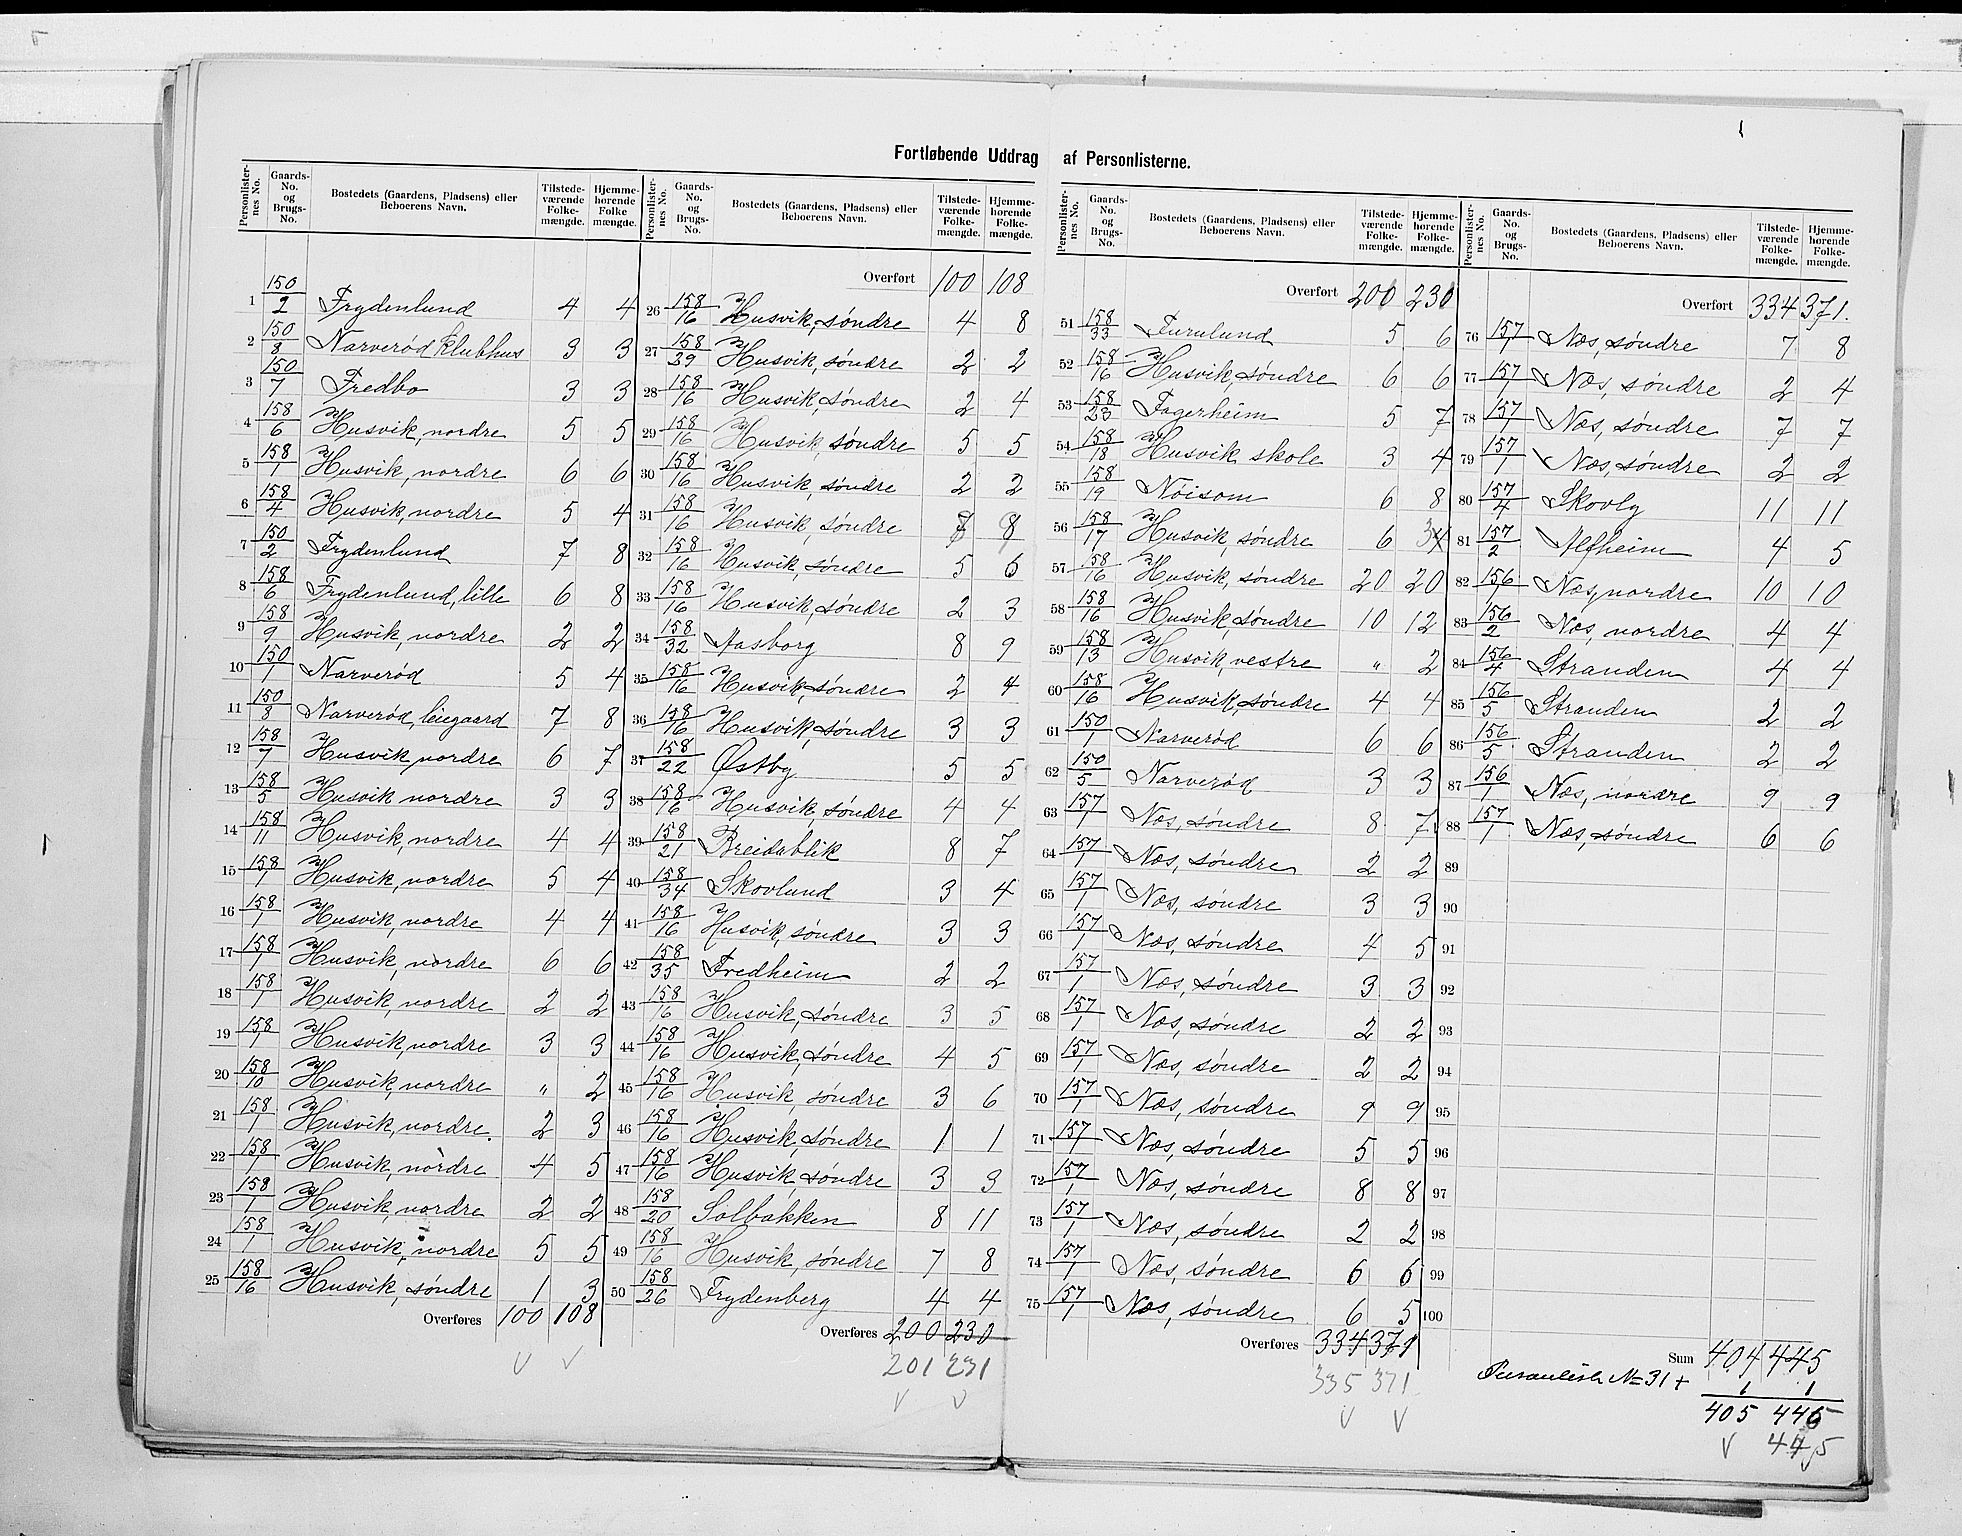 Fortløbende Uddrag af Personlisterne.
Personlister-nes No. | Gaards-No. og Brugs-No. | Bostedets (Gaardens, Pladsens) eller Beboerens Navn. | Tilstede-værende Folke-mængde. | Hjemme-hørende Folke mængde.
1 150/2 Frydenlund 4 4
2 150/8 Narverød Klubhus 3 3
3 150/7 Fredbo 3 3
4 158/6 Husvik, nordre 5 5
5 158/1 Husvik, nordre 6 6
6 158/4 Husvik, nordre 5 4
7 150/2 Frydenlund 7 8
8 158/6 Frydenlund, lille 6 8
9 158/9 Husvik, nordre 2 2
10 150/1 Narverød 5 4
11 150/8 Narverød, leiegaard 7 8
12 158/7 Husvik nordre 6 7
13 158/5 Husvik nordre 3 3
14 158/11 Husvik, nordre 4 4
15 158/1 Husvik, nordre 5 4
16 158/1 Husvik, nordre 4 4
17 158/1 Husvik, nordre 6 6
18 158/1 Husvik, nordre 2 2
19 158/1 Husvik, nordre 3 3
20 158/10 Husvik, nordre " 2
21 158/1 Husvik, nordre. 2 3
22 158/1 Husvik, nordre 4 5
23 158/1 Husvik, nordre 2 2
24 158/1 Husvik, nordre 5 5
25 158/16 Husvik, søndre 1 3
Overføres 100 108
Personlister-nes No. | Gaards-No. og Brugs-No. | Bostedets (Gaardens, Pladsens) eller Beboerens Navn. | Tilstede-værende Folke-mængde. | Hjemme-hørende Folke-mængde.
Overført 100 108
26 158/16 Husvik, søndre 4 8
27 158/29 Husvik, søndre 2 2
28 158/16 Husvik, søndre 2 4
29 158/16 Husvik, søndre 5 5
30 158/16 Husvik, søndre 2 2
31 158/16 Husvik, søndre 8 8
32 158/16 Husvik, søndre 5 6
33 158/16 Husvik, søndre 2 3
34 158/32 Aasborg 8 9
35 158/16 Husvik, søndre 2 4
36 158/16 Husvik, søndre 3 3
37 158/22 Østby 5 5
38 158/16 Husvik, søndre 4 4
39 158/21 Breidablik 8 7
40 158/34 Skovlund 3 4
41 158/16 Husvik, søndre 3 3
42 158/35 Fredheim 2 2
43 158/16 Husvik, søndre 3 5
44 158/16 Husvik, søndre 4 5
45 158/16 Husvik, søndre 3 6
46 158/16 Husvik, søndre 1 1
47 158/16 Husvik, søndre 3 3
48 158/20 Solbakken 8 11
49 158/16 Husvik, søndre 7 8
50 158/26 Frydenberg 4 4
Overføres 200 230
201 231
Personlister-nes No. | Gaards-No. og Brugs-No. | Bostedets (Gaardens, Pladsens) eller Beboerens Navn. | Tilstede-værende Folke-mængde. | Hjemme-hørende Folke-mængde.
Overført 200 230
51 158/33 Furulund 5 6
52 158/16 Husvik, søndre 6 6
53 158/23 Fagerheim 5 7
54 158/18 Husvik skole 3 4
55 158/19 Noisom 6 8
56 158/17 Husvik, søndre 6 3 4
57 58/16 Husvik, søndre 20 20
58 158/16 Husvik, søndre 10 12
59 158/13 Husvik, vestre " 2
60 158/16 Husvik, søndre 4 4
61 150/1 Narverød 6 6
62 150/5 Narverød 3 3
63 157/1 Næs, søndre 8 7
64 157/1 Næs, søndre 2 2
65 157/1 Næs, søndre 3 3
66 157/1 Næs, søndre 4 5
67 157/1 Næs, søndre 3 3
68 157/1 Næs, søndre 2 2
69 157/1 Næs, søndre 2 2
70 157/1 Næs, søndre 9 9
71 157/1 Næs, søndre 5 5
72 157/1 Næs, søndre 8 8
73 157/1 Næs, søndre 2 2
74 157/1 Næs, søndre 6 6
75 157/1 Næs, søndre 6 5
Overføres 334 371
335 371
Personlister-nes No. | Gaards-No. og Brugs-No. | Bostedets (Gaardens, Pladsens) eller Beboerens Navn. | Tilstede-værende Folke-mængde. | Hjemme-hørende Folke-mængde.
Overført 334 371.
76 157/1 Næs, søndre 7 8
77 157/1 Næs, søndre 2 4
78 157/1 Næs, søndre 7 7
79 157/1 Næs, søndre 2 2
80 157/4 Skovly 11 11
81 157/2 Alfheim 4 5
82 156/1 Næs, nordre 10 10
83 156/2 Næs, nordre 4 4
84 156/4 Stranden 4 4
85 156/5 Stranden 2 2
86 156/5 Stranden 2 2
87 156/1 Næs, nordre 9 9
88 157/1 Næs, søndre 6 6
89
90
91
92
93
94
95
96
97
98
99
100
Sum 404 445
Personliste No 31 + 1 1
405 446
445